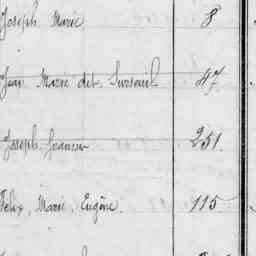 Joseph Marie 8
Jean Marie dit 47
Joseph 251
Felix, Marie, Eugène. 115